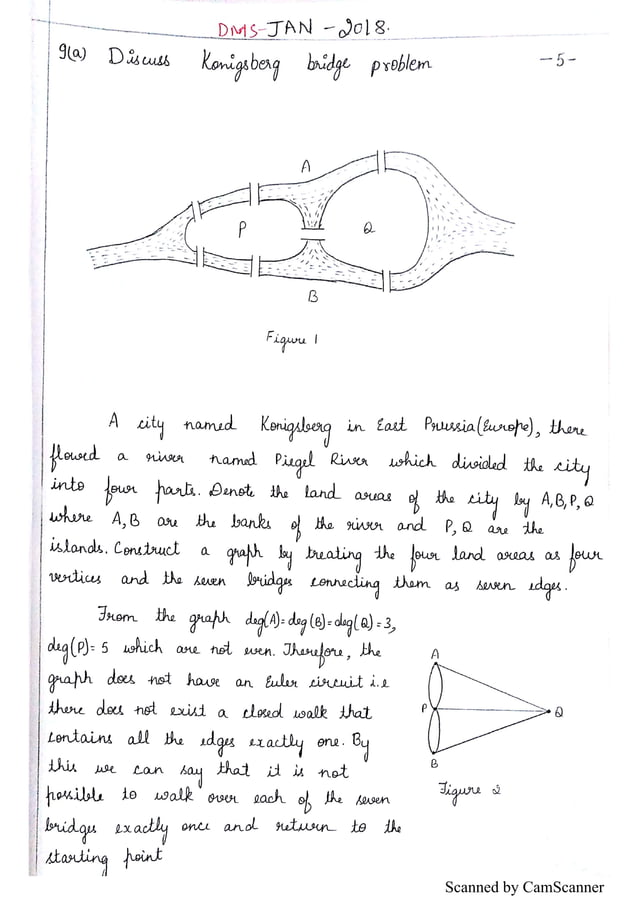 DMS-JAN-2018.
9(a) Discuss Konigsberg bridge problem -5-
A
P
Q
B
Figure 1
A city named Konigsberg in East Prussia (Europe), there
flowed a river named Piegel River which divided the city
into four parts. Denote the land areas of the city by A,B,P,Q
where A,B are the banks of the river and P,Q are the
islands. Construct a graph by treating the four land areas as four
vertices and the seven bridges connecting them as seven edges.
From the graph deg(A)=deg(B)=deg(Q)=3,
deg(P)=5 which are not even. Therefore, the
graph does not have an Euler circuit i.e
there does not exist a closed walk that
contains all the edges exactly one. By
this we can say that it is not
possible to walk over each of the seven
bridges exactly once and return to the
starting point
A
P
Q
B
Figure 2
Scanned by CamScanner